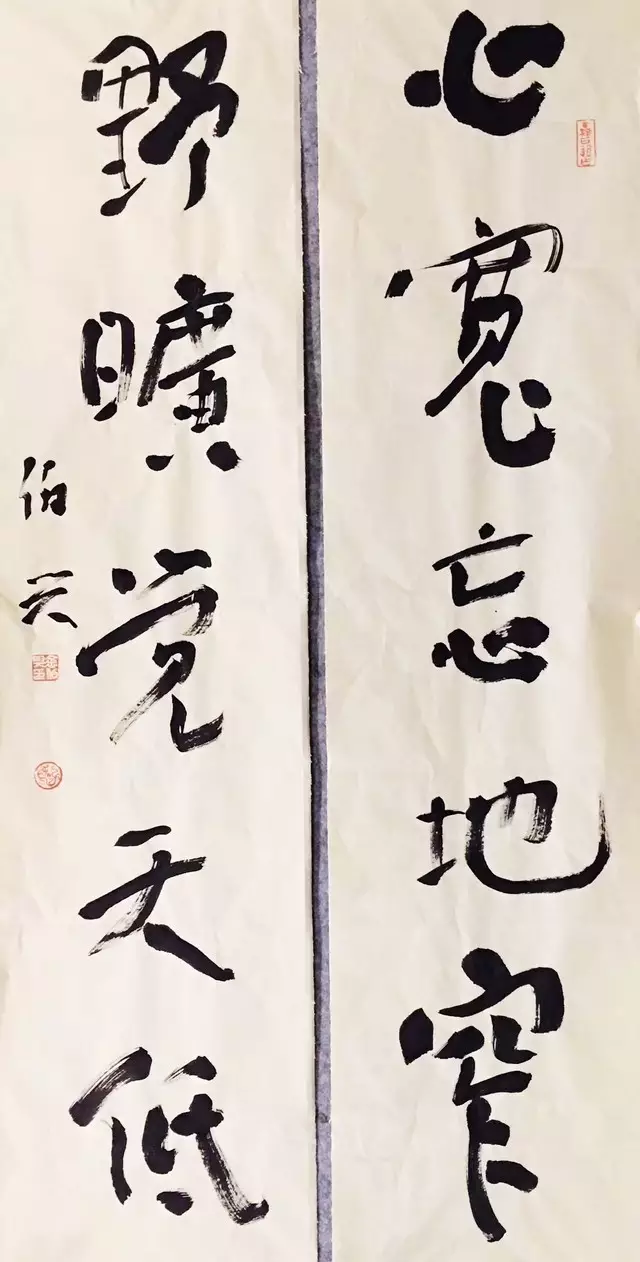 心寬忘地窄
野曠覚天低
伯兴